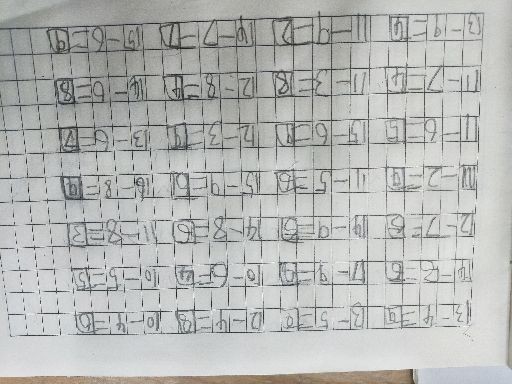 13-4=9 13-5=8 12-4=8 10-4=6
17-9=8 10-6=4 10-5=5
12-7=5 14-9=5 14-8=6 11-8=3
11-2=9 11-5=6 15-9=6
11-6=5 15-6=9 12-3=9 13-6=7
11-7=4 11-3=8 12-8=4 14-6=8
13-9=4 11-9=2 15-6=9